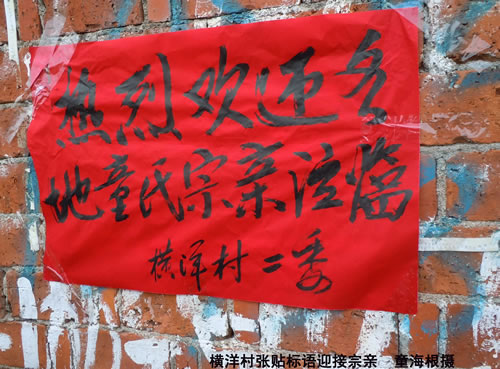 热烈欢迎各
地童氏宗亲涖臨
横洋村二委
横洋村张贴标语迎接宗亲 童海根摄